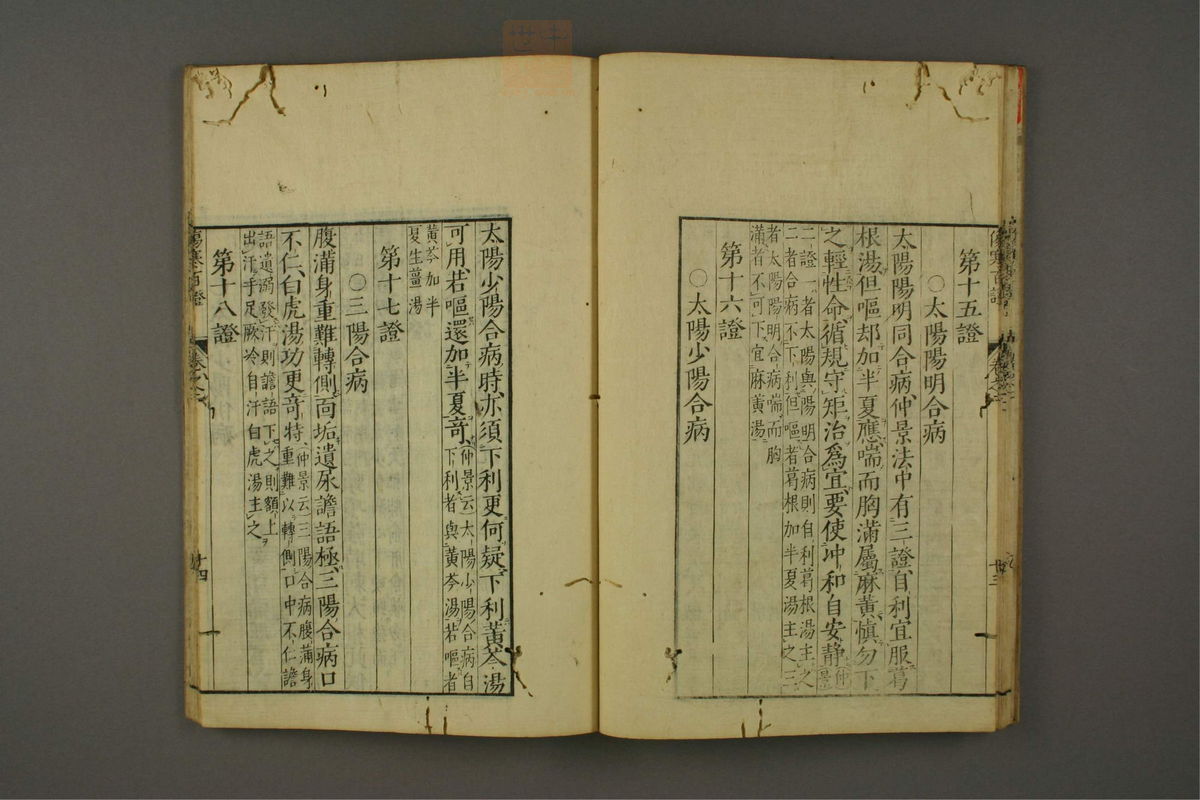 第十五證
○太陽陽明合病
太陽陽明同合病仲景法中有三證自利宜服葛
根湯但嘔却加半夏應喘而胸滿屬麻黃慎勿下
之輕性命循規守矩治爲宜要使冲和自安静仲景
二證一者太陽與陽明合病則自利葛根湯主之
二者合病不下利但嘔者葛根加半夏湯主之三
者太陽陽明合病喘而胸
滿者不可下宜麻黃湯
第十六證
○太陽少陽合病
太陽少陽合病時亦須下利更何疑下利黃芩湯
可用若嘔還加半夏奇仲景云太陽少陽合病自
下利者與黃芩湯若嘔者
黃芩加半
夏生薑湯
第十七證
○三陽合病
腹滿身重難轉側面垢遺尿譫語極三陽合病口
不仁白虎湯功更奇特仲景云三陽合病腹滿身
重難以轉側口中不仁譫
語遺溺發汗則譫語下之則額上
出汗手足厥冷自汗白虎湯主之
第十八證
傷寒百證
十四